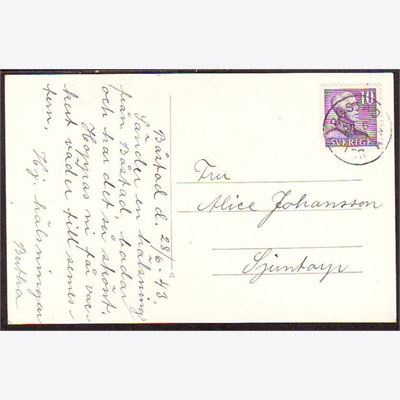 Båstad d. 28/6-43.
Sänder en hälsning
från Båstad, badar
och har det så skönt.
Hoppas ni får vac-
kert väder till semes-
tern. Hj. hälsningar
Bertha
10
SVERIGE
Fru
Alice Johansson
Sjuntorp